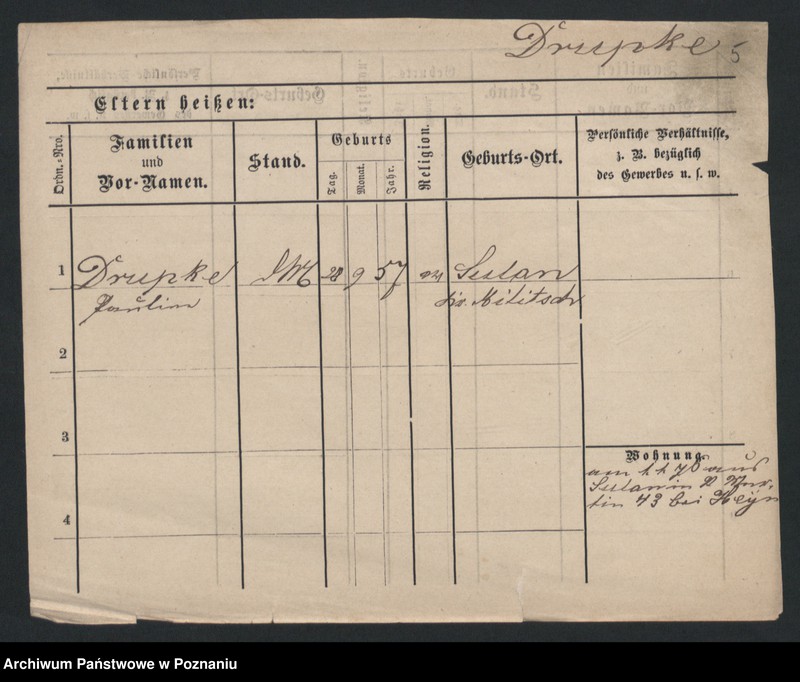 Drupke 5
Eltern heißen:
Ordn.-Nro.
Familien
und
Vor-Namen.
Stand.
Geburts
Tag.
Monat.
Jahr.
Religion.
Geburts-Ort.
Persönliche Verhältnisse,
z. B. bezüglich
des Gewerbes u. s. w.
1 Drupke DM 28 9 57 ev Sulau
Paulin Kr. Militsch
2
3
4
Wohnung.
am 1 4 70 aus
Sulau in
tin 43 bei Heyn
Archiwum Państwowe w Poznaniu